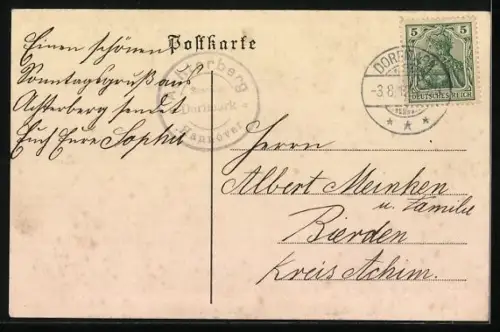 Postkarte
Einen schönen
Sonntagsgruß aus
Achterberg sendet
Euch Eure Sophie
Achterberg
Hannover
5 5
DEUTSCHES REICH
-3.8.
Herrn
Albert Meinken
u. Familie
Bierden
Kreis Achim.